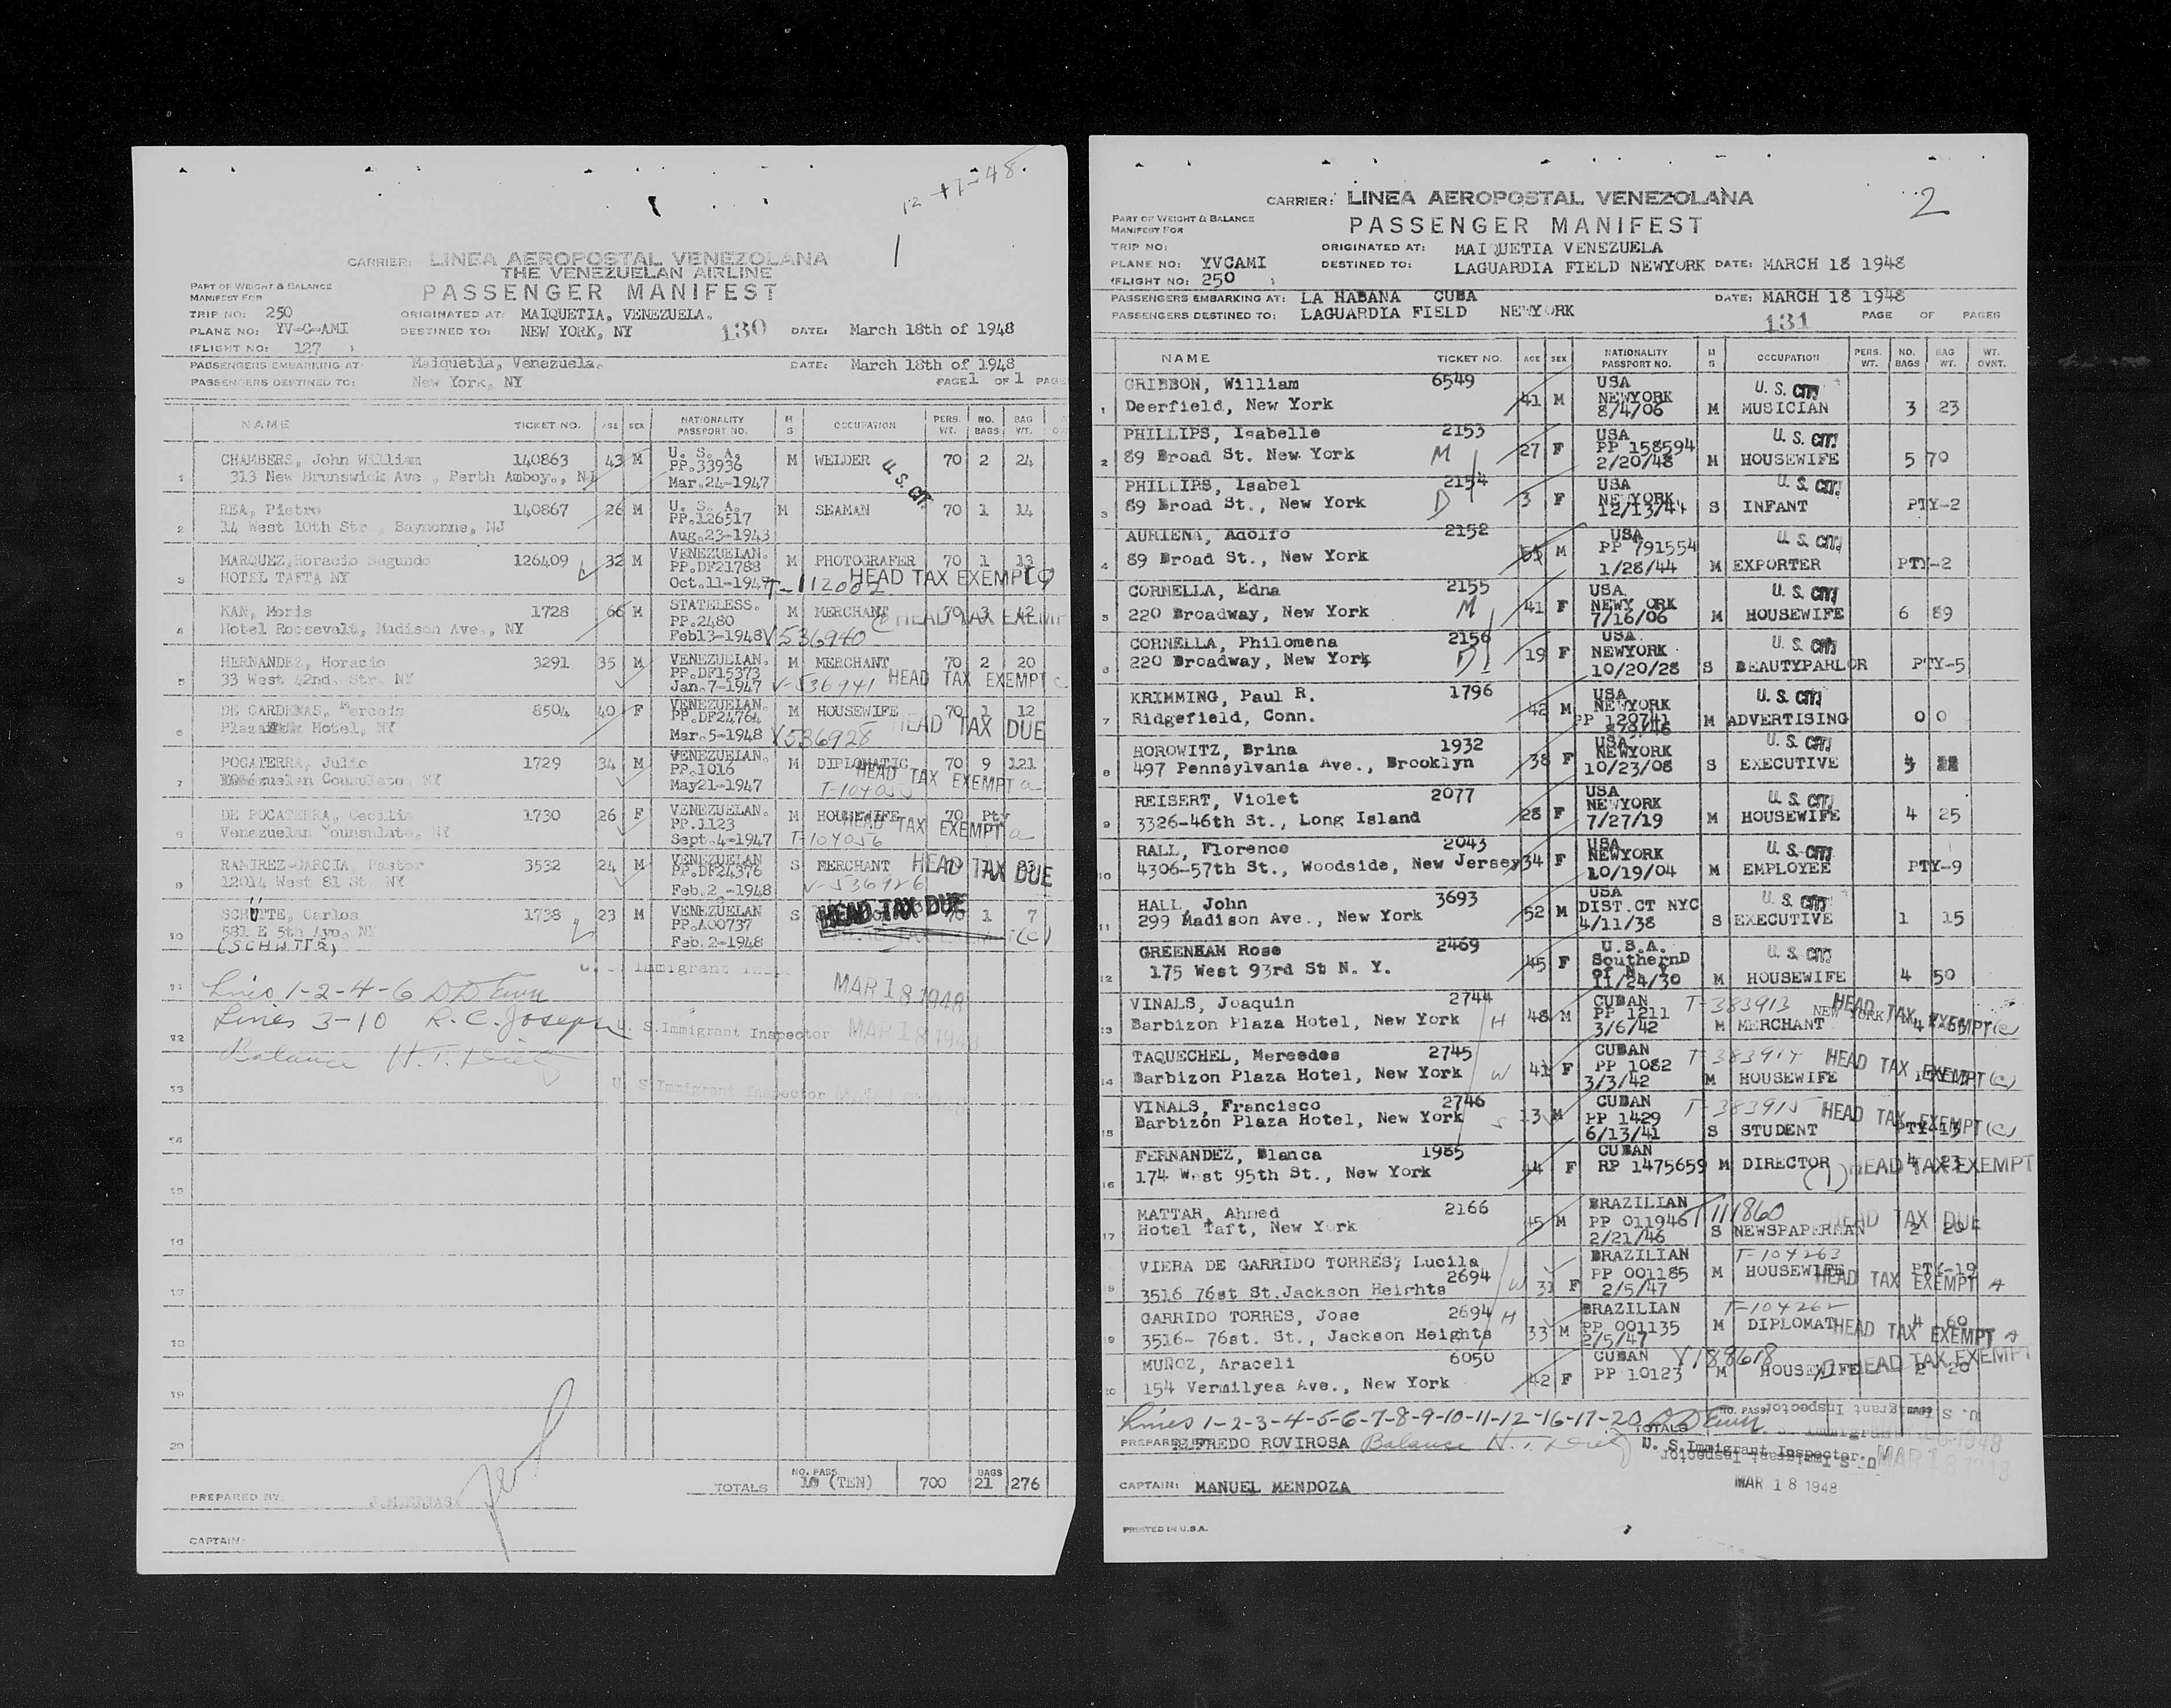 12-17-48.
1
CARRIER: LINEA AEROPOSTAL VENEZOLANA
THE VENEZUELAN AIRLINE
PART OF WEIGHT & BALANCE
MANIFEST FOR
PASSENGER MANIFEST
TRIP NO: 250 ORIGINATED AT: MAIQUETIA, VENEZUELA.
PLANE NO: YV-C-AMI DESTINED TO: NEW YORK, NY 130 DATE: March 18th of 1948
(FLIGHT NO: 127 )
PASSENGERS EMBARKING AT: Maiquetia, Venezuela. DATE: March 18th of 1948
PASSENGERS DESTINED TO: New York, NY PAGE 1 OF 1 PAG
NAME TICKET NO. AGE SEX NATIONALITY PASSPORT NO. M S OCCUPATION PERS. WT. NO. BAGS BAG WT.
1 CHAMBERS, John William 140863 43 M U. S. A. M WELDER 70 2 24
313 New Brunswick Ave., Perth Amboy., NJ PP.33936 U. S. CIT.
Mar.24-1947
2 REA, Pietro 140867 26 M U. S. A. M SEAMAN 70 1 14
14 West 10th Str., Baynonne, NJ PP.126517
Aug.23-1943
3 MARQUEZ,Horacio Segundo 126409 32 M VENEZUELAN. M PHOTOGRAFER 70 1 13
HOTEL TAFTA NY PP.DF21788
Oct.11-1947 T-112002 HEAD TAX EXEMPT (C)
4 KAN, Moris 1728 66 M STATELESS. M MERCHANT 70 3 42
Hotel Roosevelt, Madison Ave., NY PP.2480 HEAD TAX EXEMP
Feb13-1948 V536940
5 HERNANDEZ, Horacio 3291 35 M VENEZUELIAN. M MERCHANT 70 2 20
33 West 42nd. Str. NY PP.DF15373
Jan.7-1947 V-536941 HEAD TAX EXEMPT C
6 DE CARDENAS, Merceds 8504 40 F VENEZUELAN. M HOUSEWIFE 70 1 12
Plaza Hotel, NY PP.DF24764 HEAD TAX DUE
Mar.5-1948 V536928
7 POCATERRA, Julio 1729 34 M VENEZUELAN. M DIPLOMATIC 70 9 121
Venezuelan Consulate, NY PP.1016 HEAD TAX EXEMPT a
May21-1947 T-104055
8 DE POCATERRA, Cecilia 1730 26 F VENEZUELAN. M HOUSEWIFE 70 Pty
Venezuelan Counsulate, NY PP.1123 HEAD TAX EXEMPT a
Sept.4-1947 T-104056
9 RAMIREZ-GARCIA, Pastor 3532 24 M VENEZUELAN S MERCHANT HEAD TAX DUE
12014 West 81 St. NY PP.DF24376
Feb.2 -1948 V-536926
10 SCHÜTTE, Carlos 1738 23 M VENEZUELAN S HEAD TAX DUE 70 1 7
581 E 5th Ave, NY PP.A00737
(SCHUTTE) Feb.2-1948 HEAD TAX EXEMPT (C)
11 Lines 1-2-4-6 U. S. Immigrant Insp. MAR 18 1948
12 Lines 3-10 R.C. Joseph U. S. Immigrant Inspector MAR 18 1948
Balance
13 U. S. Immigrant Inspector
14
15
16
17
18
19
20
TOTALS NO. PASS. 10 (TEN) 700 BAGS 21 276
PREPARED BY:
CAPTAIN:
2
CARRIER: LINEA AEROPOSTAL VENEZOLANA
PART OF WEIGHT & BALANCE
MANIFEST FOR
PASSENGER MANIFEST
TRIP NO: ORIGINATED AT: MAIQUETIA VENEZUELA
PLANE NO: YVCAMI DESTINED TO: LAGUARDIA FIELD NEWYORK DATE: MARCH 18 1948
(FLIGHT NO: 250 )
PASSENGERS EMBARKING AT: LA HABANA CUBA DATE: MARCH 18 1948
PASSENGERS DESTINED TO: LAGUARDIA FIELD NEWYORK 131 PAGE OF PAGES
NAME TICKET NO. AGE SEX NATIONALITY PASSPORT NO. M S OCCUPATION PERS. WT. NO. BAGS BAG WT. WT. OVNT.
1 GRIBBON, William 6549 41 M USA U. S. CIT.
Deerfield, New York NEWYORK
8/4/06 M MUSICIAN 3 23
2 PHILLIPS, Isabelle 2153 27 F USA U. S. CIT.
89 Broad St. New York M PP 158594
2/20/48 M HOUSEWIFE 5 70
3 PHILLIPS, Isabel 2154 3 F USA U. S. CIT.
89 Broad St., New York D NEWYORK
12/13/44 S INFANT PTY-2
4 AURIENA, Adolfo 2152 M USA U. S. CIT.
89 Broad St., New York PP 791554
1/28/44 M EXPORTER PTY-2
5 CORNELLA, Edna 2155 41 F USA U. S. CIT.
220 Broadway, New York M NEWY ORK
7/16/06 M HOUSEWIFE 6 89
6 CORNELLA, Philomena 2156 19 F USA U. S. CIT.
220 Broadway, New York D NEWYORK
10/20/28 S BEAUTYPARLOR PTY-5
7 KRIMMING, Paul R. 1796 42 M USA U. S. CIT.
Ridgefield, Conn. NEWYORK
PP 120741 M ADVERTISING 0 0
8 HOROWITZ, Brina 1932 38 F USA U. S. CIT.
497 Pennsylvania Ave., Brooklyn NEWYORK
10/23/08 S EXECUTIVE
9 REISERT, Violet 2077 28 F USA U. S. CIT.
3326-46th St., Long Island NEWYORK
7/27/19 M HOUSEWIFE 4 25
10 RALL, Florence 2043 34 F USA U. S. CIT.
4306-57th St., Woodside, New Jersey NEWYORK
10/19/04 M EMPLOYEE PTY-9
11 HALL, John 3693 52 M USA U. S. CIT.
299 Madison Ave., New York DIST.CT NYC
4/11/38 S EXECUTIVE 1 15
12 GREENHAM Rose 2469 45 F U.S.A. U. S. CIT.
175 West 93rd St N. Y. SouthernD of N. Y.
11/24/30 M HOUSEWIFE 4 50
13 VINALS, Joaquin 2744 48 M CUBAN T-383913 NEW YORK HEAD TAX EXEMPT (C)
Barbizon Plaza Hotel, New York H PP 1211
3/6/42 M MERCHANT
14 TAQUECHEL, Mercedes 2745 41 F CUBAN T-383914 HEAD TAX EXEMPT (C)
Barbizon Plaza Hotel, New York W PP 1082
3/3/42 M HOUSEWIFE
15 VINALS, Francisco 2746 13 M CUBAN T-383915 HEAD TAX EXEMPT (C)
Barbizon Plaza Hotel, New York S PP 1429
6/13/41 S STUDENT PTY-13
16 FERNANDEZ, Blanca 1985 44 F CUBAN
174 West 95th St., New York RP 1475659 M DIRECTOR (1) HEAD TAX EXEMPT 4 23
17 MATTAR, Ahmed 2166 45 M BRAZILIAN T111860
Hotel Taft, New York PP 011946 HEAD TAX DUE
2/21/46 S NEWSPAPERMAN 2 20
18 VIERA DE GARRIDO TORRES, Lucila BRAZILIAN T-104263
2694 W 31 F PP 001185 M HOUSEWIFE PTY-19
3516 76st St.Jackson Heights 2/5/47 HEAD TAX EXEMPT A
19 GARRIDO TORRES, Jose 2694 H 33 M BRAZILIAN T-104262
3516- 76st. St., Jackson Heights PP 001135 M DIPLOMAT 4 60 HEAD TAX EXEMPT A
2/5/47
20 MUÑOZ, Araceli 6050 42 F CUBAN V188618 HEAD TAX EXEMPT
154 Vermilyea Ave., New York PP 10123 M HOUSEWIFE 2 20
Lines 1-2-3-4-5-6-7-8-9-10-11-12-16-17-20 NO. PASS. BAGS
TOTALS U. S. Immigrant Inspector
PREPARED BY: ALFREDO ROVIROSA Balance U. S. Immigrant Inspector. MAR 18 1948
CAPTAIN: MANUEL MENDOZA MAR 18 1948
PRINTED IN U.S.A.